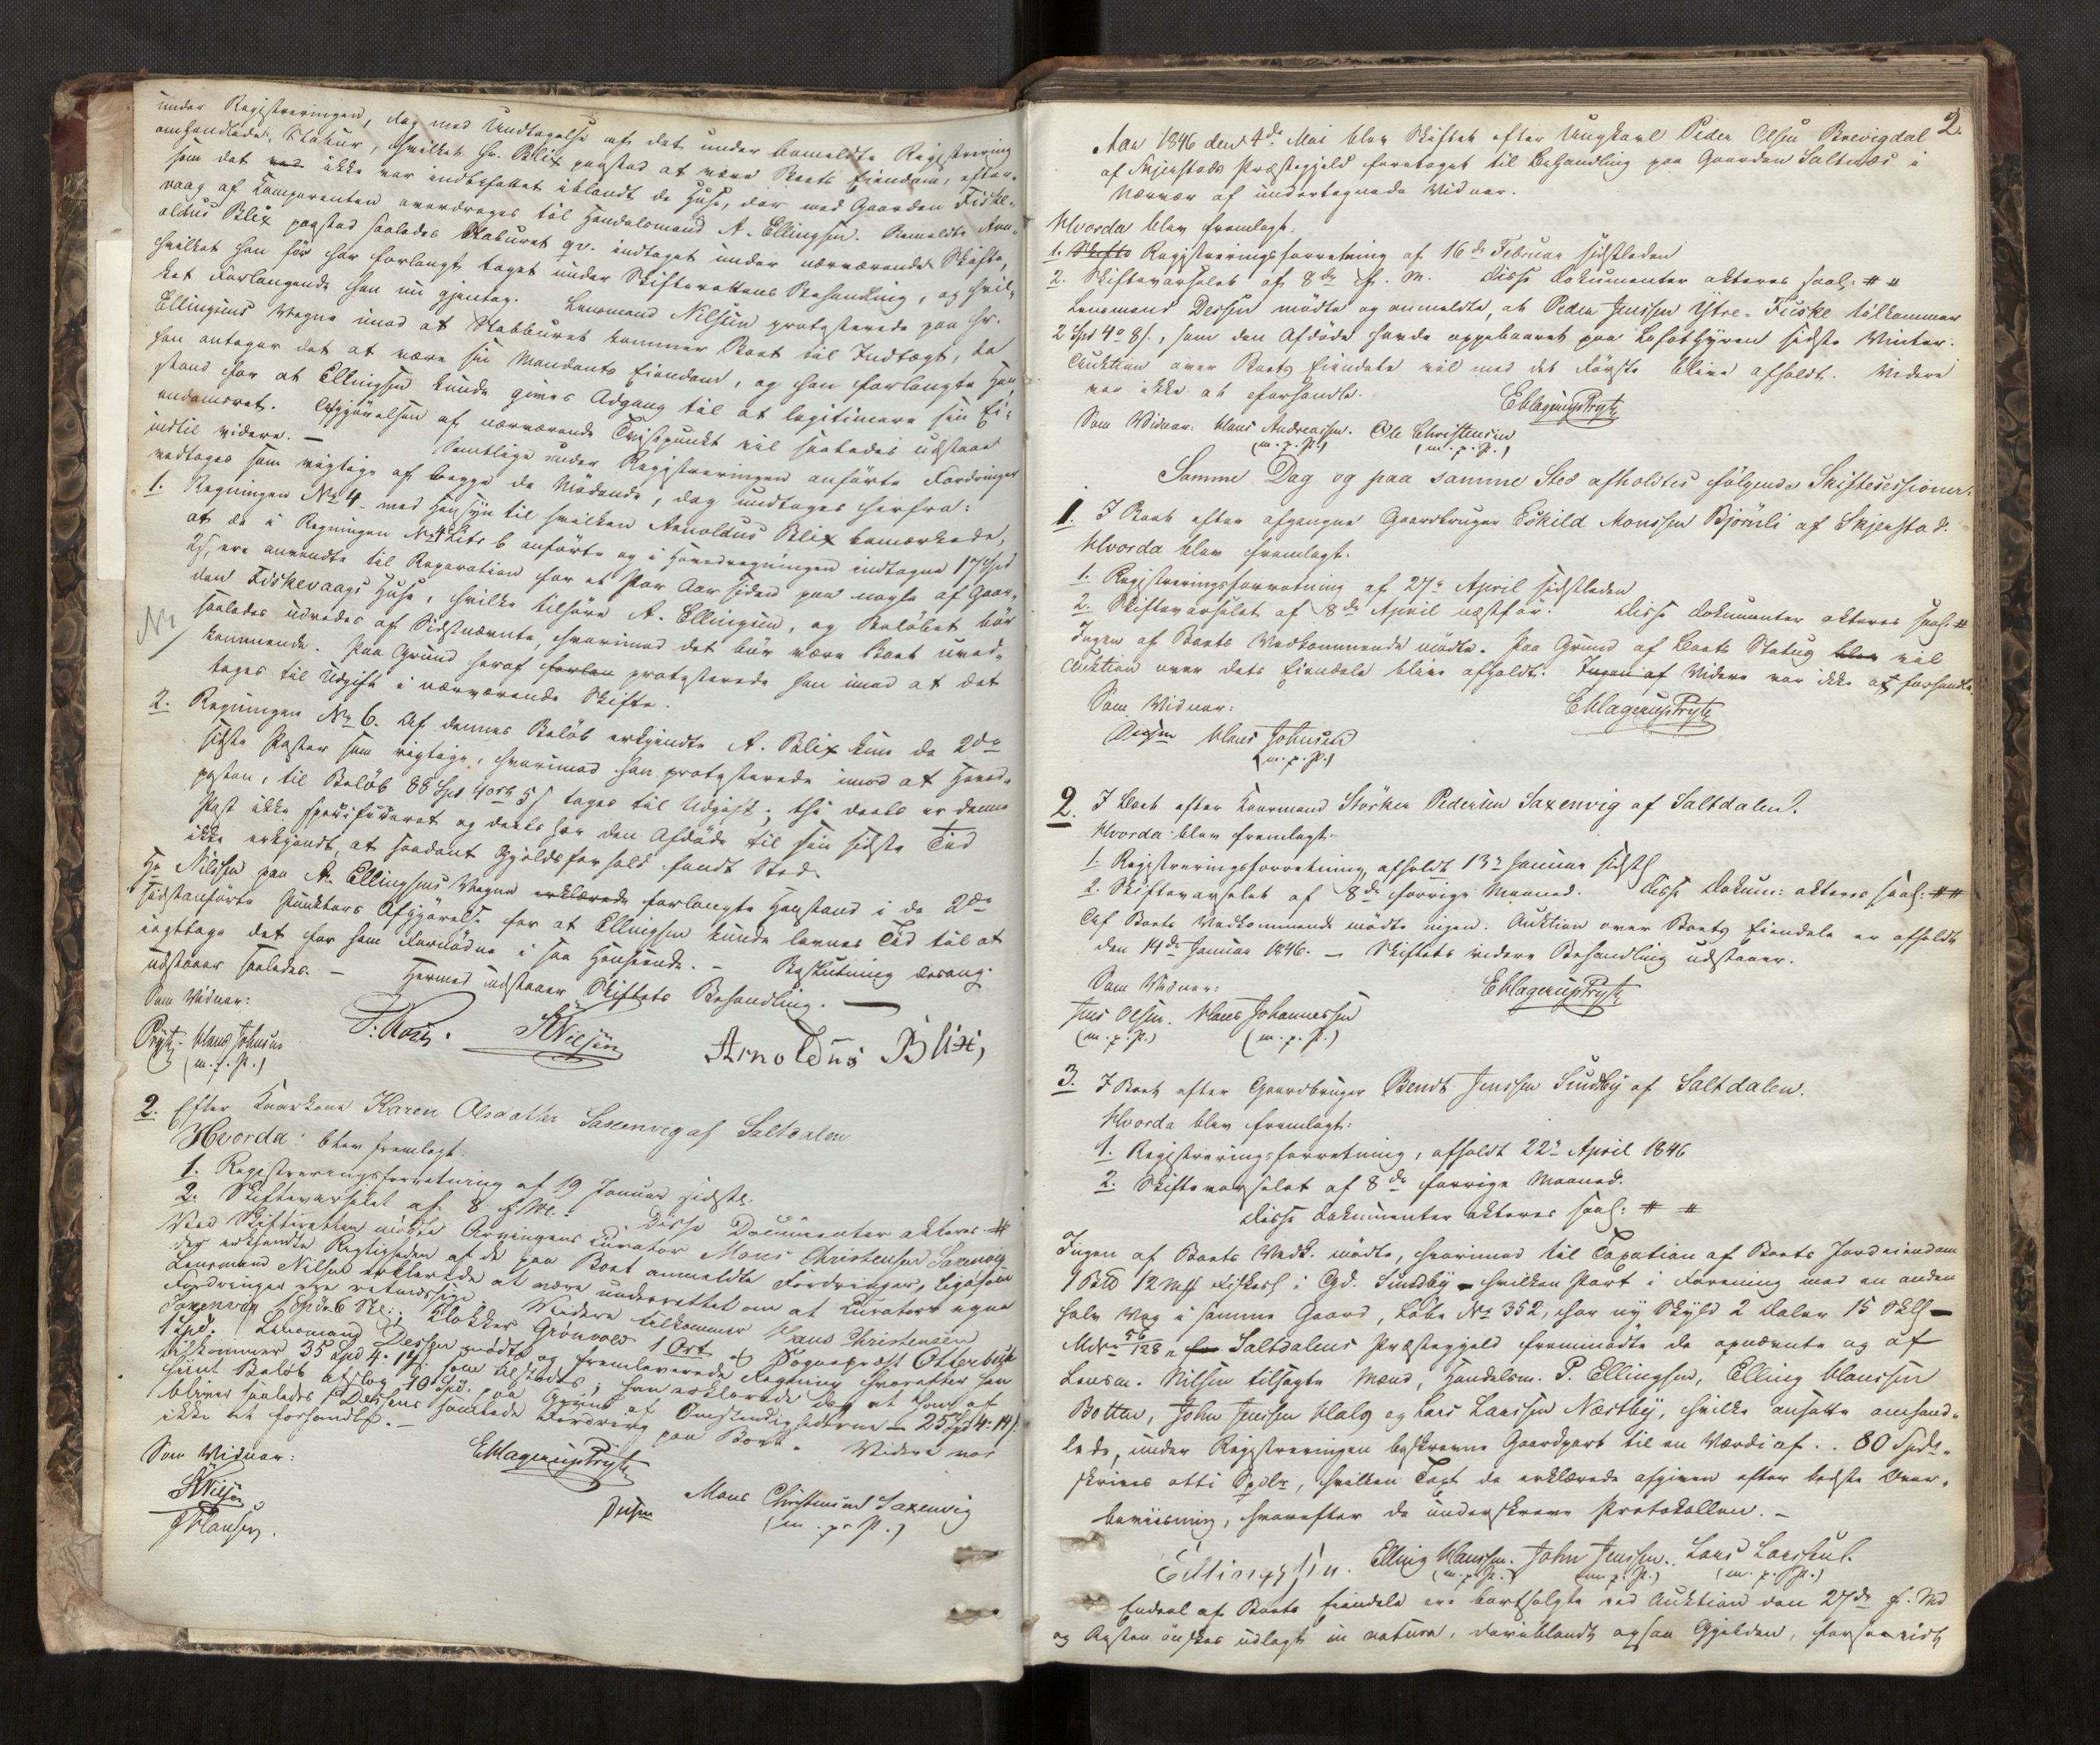 under Registreringen, dog med Undtagelse af det under bemeldte Registrering
omhandlede Stabur, hvilket Hr. Blix paastod at være Boets Eiendom, efter-
som det ved ikke var indbefattet iblandt de Huse, der med Gaarden Fiske-
vaag af Comparenten overdroges til Handelsmand A. Ellingsen. Bemeldte Arn-
oldus Blix paastod saaledes Staburet qv. indtaget under nærværende Skifte,
hvilket han før har forlangt taget under Skifterettens Behandling, og hvil-
ket Forlangende han nu gjentog. Lensmand Nilsen protesterede paa Hr.
Ellingsens Vegne imod at Stabburet kommer Boet til Indtægt, da
han antager det at være sin Mandants Eiendom, og han forlangte Hen-
stand for at Ellingsen kunde gives Adgang til at legitimere sin Ei-
endomsret. Afgjørelsen af nærværende Tvistepunkt vil saaledes udstaae
indtil videre. — Samtlige under Registreringen anførte Fordringer
vedtoges som rigtige af begge de Mødende, dog undtages herfra:
1. Regningen No 4 med Hensyn til hvilken Arnoldus Blix bemærkede,
at de i Regningen No 4 Litr b anførte og i Hovedregningen indtagne 17 Spd
2 s, ere anvendte til Reparation for et Par Aar siden paa nogle af Gaar-
den Fiskevaags Huse, hvilke tilhøre A. Ellingsen, og Beløbet bør
saaledes udredes af Sidstnævnte, hvorimod det bør være Boet uved-
kommende. Paa Grund heraf forlan protesterede han imod at det
tages til Udgift i nærværende Skifte.
2. Regningen No 6. Af dennes Beløb erkjendte A. Blix kun de 2de
sidste Poster som rigtige, hvorimod han protesterede imod at Hoved-
posten, til Beløb 88 Spd 4 ort 5 s tages til Udgift; thi deels er denne
Post ikke specificeret og deels har den Afdøde til sin sidste Tid
ikke erkjendt, at saadant Gjeldsforhold fandt Sted.
Hr Nilssen paa A. Ellingsens Vegne erklærede forlangte Henstand i de 2de
sidstanførte Punkters Afgjørelse for at Ellingsen kunde levnes Tid til at
iagttage det for ham fornødne i saa Henseende. — Beslutning desang:
udstaaer saaledes. — Hermed udstaaer Skiftets Behandling. —
Som Vidner:
Pryts. Hans Johnsen
(m. p. P.)
SNilsen
Arnoldus Blix,
2. Efter Kaarkone Karen Olsdatter Saxenvig af Saltdalen
Hvorda: blev fremlagt:
1. Registreringsforretning af 19 Januar sidstl.
2. Skiftevarselet af 8 f. M. Disse Documenter akteres #
Ved Skifteretten mødte Arvingens Curator Mons Christensen Saxenvig
der erkjendte Rigtigheden af de paa Boet anmeldte Fordringer, ligesom
Lensmand Nilsen erklærede at være underrettet om at Curators egne
Fordringer ere retmæssige. Videre tilkommer Hans Christensen
Saxenvig 1 Spd 6 Sk:, Klokker Grønvold 1 Ort og Sognepræst Otterbech
1 Spd. Lensmand Dessen mødte og fremleverede Regning hvorefter han
tilkommer 35 Spd 4 14 s som tilstodes; han erklærede dog at han af
hiint Beløb afslog 10 Spd. paa Grund af Omstændighederne — 25 Spd 4 14 s.
bliver saaledes Dessens samlede Fordring paa Boet. Videre var
ikke at forhandle. —
Som Vidner:
EHagerupPryts
SNilsen
JHansen.
Dessen
Mons Christensen Saxenvig
(m. p. P.)
2.
Aar 1846 den 4de Mai blev Skiftet efter Ungkarl Peder Olsen Brevigdal
af Skjerstads Præstegjeld foretaget til Behandling paa Gaarden Saltnæs i
Nærvær af undertegnede Vidner.
Hvorda blev fremlagt:
1. Skifte Registreringsforretning af 16de Februar sidstleden
2. Skiftevarselet af 8de f. M. Disse Dokumenter akteres saal: # #
Lensmand Dessen mødte og anmeldte, at Peder Jenssen Ytre-Fiske tilkommer
2 Spd 4 o 8 s., som den Afdøde havde oppebaaret paa Lofothyren sidste Vinter.
Auktion over Boets Eiendele vil med det Første blive afholdt. Videre
var ikke at forhandle.
EHagerupPryts
Som Vidner: Hans Andreassen. Ole Christensen
(m. p. P.) (m. p. P.)
Samme Dag og paa samme Sted afholdtes følgende Skiftesessioner.
1. I Boet efter afgangne Gaardbruger Eskild Monssen Bjørnli af Skjerstad.
Hvorda blev fremlagt.
1. Registreringsforretning af 27de April sidstleden
2. Skiftevarselet af 8de April næstfør. Disse Dokumenter akteres saal: #
Ingen af Boets Vedkommende mødte. Paa Grund af Boets Status blev vil
Auktion over dets Eiendele blive afholdt. Ingen af Videre var ikke at forhandle.
Som Vidner:
EHagerupPryts
Dessen Hans Johnsen
(m. p. P.)
2. I Boet efter Kaarmand Størker Pedersen Saxenvig af Saltdalen.
Hvorda blev fremlagt.
1. Registreringsforretning, afholdt 13de Januar sidstl
2. Skiftevarselet af 8de forrige Maaned. Disse Dokum: akteres saal: # #
Af Boets Vedkommende mødte ingen. Auktion over Boets Eiendele er afholdt
den 14de Januar 1846. — Skiftets videre Behandling udstaaer.
Som Vidner:
EHagerupPryts
Jens Olsen. Hans Johannessen
(m. p. P.) (m. p. P.)
3. I Boet efter Gaardbruger Bendt Jenssen Sundby af Saltdalen.
Hvorda blev fremlagt:
1. Registreringsforretning, afholdt 22de April 1846
2. Skiftevarselet af 8de forrige Maaned.
Disse Dokumenter akteres saal: # #
Ingen af Boets Vedk. mødte, hvorimod til Taxation af Boets Jordeiendom
1 Pd 12 Mrk Fiskesl i Gd. Sundby — hvilken Part i Forening med en anden
halv Vog i samme Gaard, Løbe No 352, har ny Skyld 2 Daler 15 Skl —
Mdr 56/128 „ for Saltdalens Præstegjeld fremmødte de opnævnte og af
Lensm. Nilsen tilsagte Mænd, Handelsm. P. Ellingsen, Elling Hanssen
Botten, John Jenssen Hals og Lars Larssen Næstby, hvilke ansatte omhand-
lede, under Registreringen beskrevne Gaardpart til en Værdi af .. 80 Spdr.
skrives otti Spdlr, hvilken Taxt de erklærede afgiven efter bedste Over-
beviisning, hvorefter de underskreve Protokollen. —
Ellingsen. Elling Hanssen. John Jenssen. Lars Larssen.
(m. p. P.) (m. p. P.) (m. p. P.)
Endeel af Boets Eiendele ere bortsolgte ved Auktion den 27de f. Md
og Resten ønskes udlagt in natura, deriblandt ogsaa Gjælden, forsaavidt